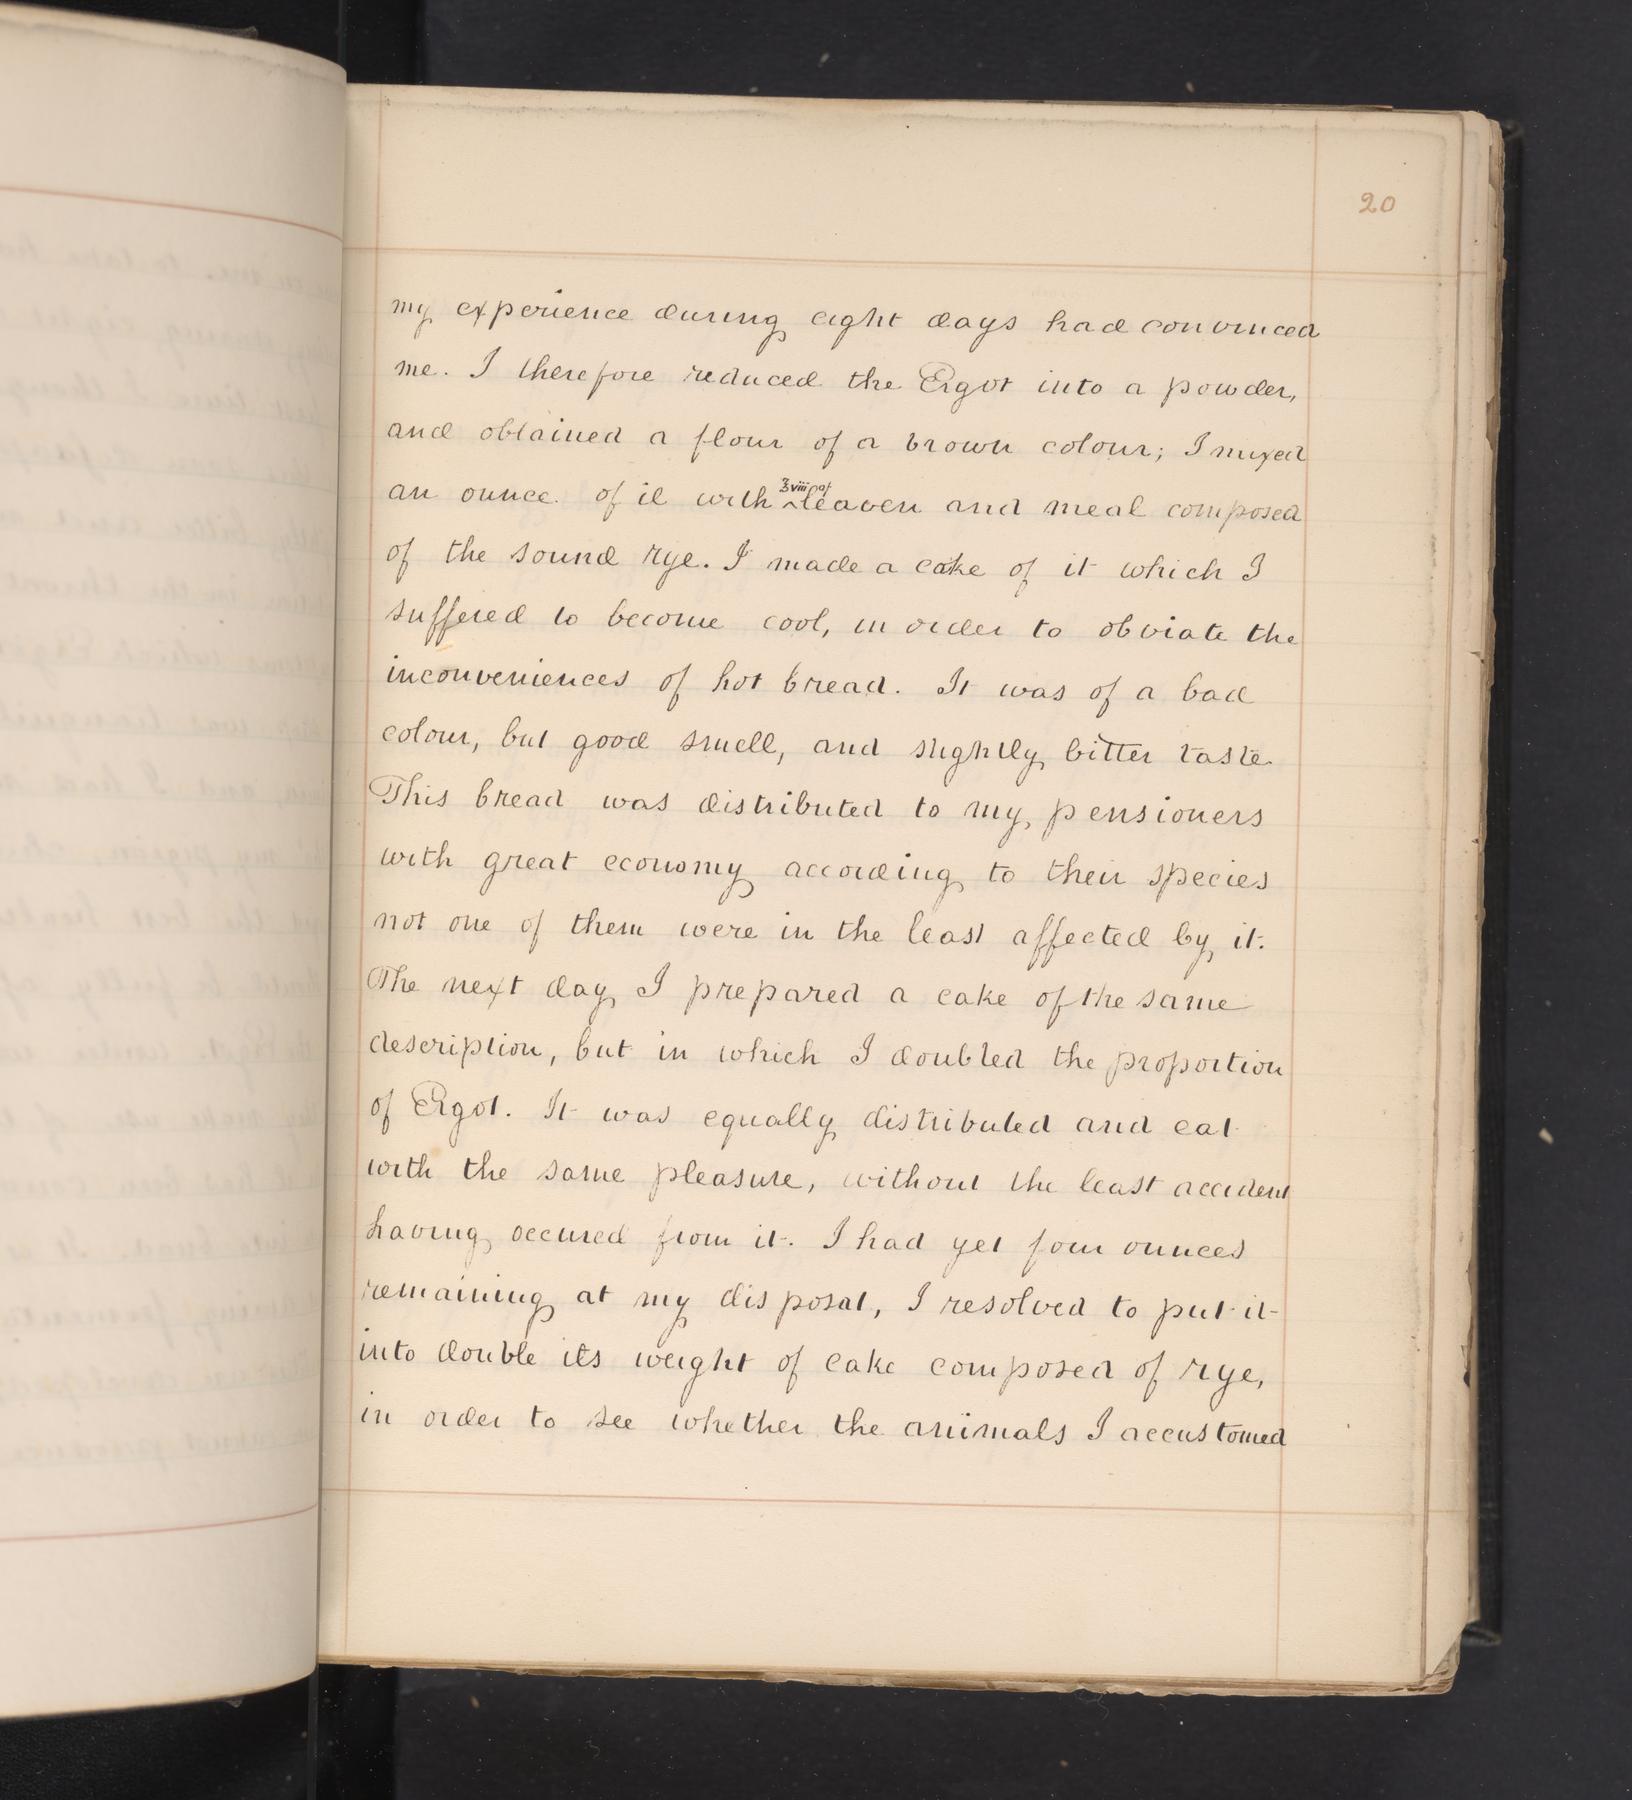 20
my experience during eight days had convinced
me. I therefore reduced the Ergot into a powder,
and obtained a flour of a brown colour; I mixed
an ounce of it with ^ ℥viii of leaven and meal composed
of the sound rye. I made a cake of it which I
suffered to become cool, in order to obviate the
inconveniences of hot bread. It was of a bad
colour, but good smell, and slightly bitter taste.
This bread was distributed to my pensioners
with great economy according to their species
not one of them were in the least affected by it.
The next day I prepared a cake of the same
description, but in which I doubled the proportion
of Ergot. It was equally distributed and eat
with the same pleasure, without the least accident
having occured from it. I had yet four ounces
remaining at my disposal, I resolved to put it
into double its weight of cake composed of rye,
in order to see whether the animals I accustomed